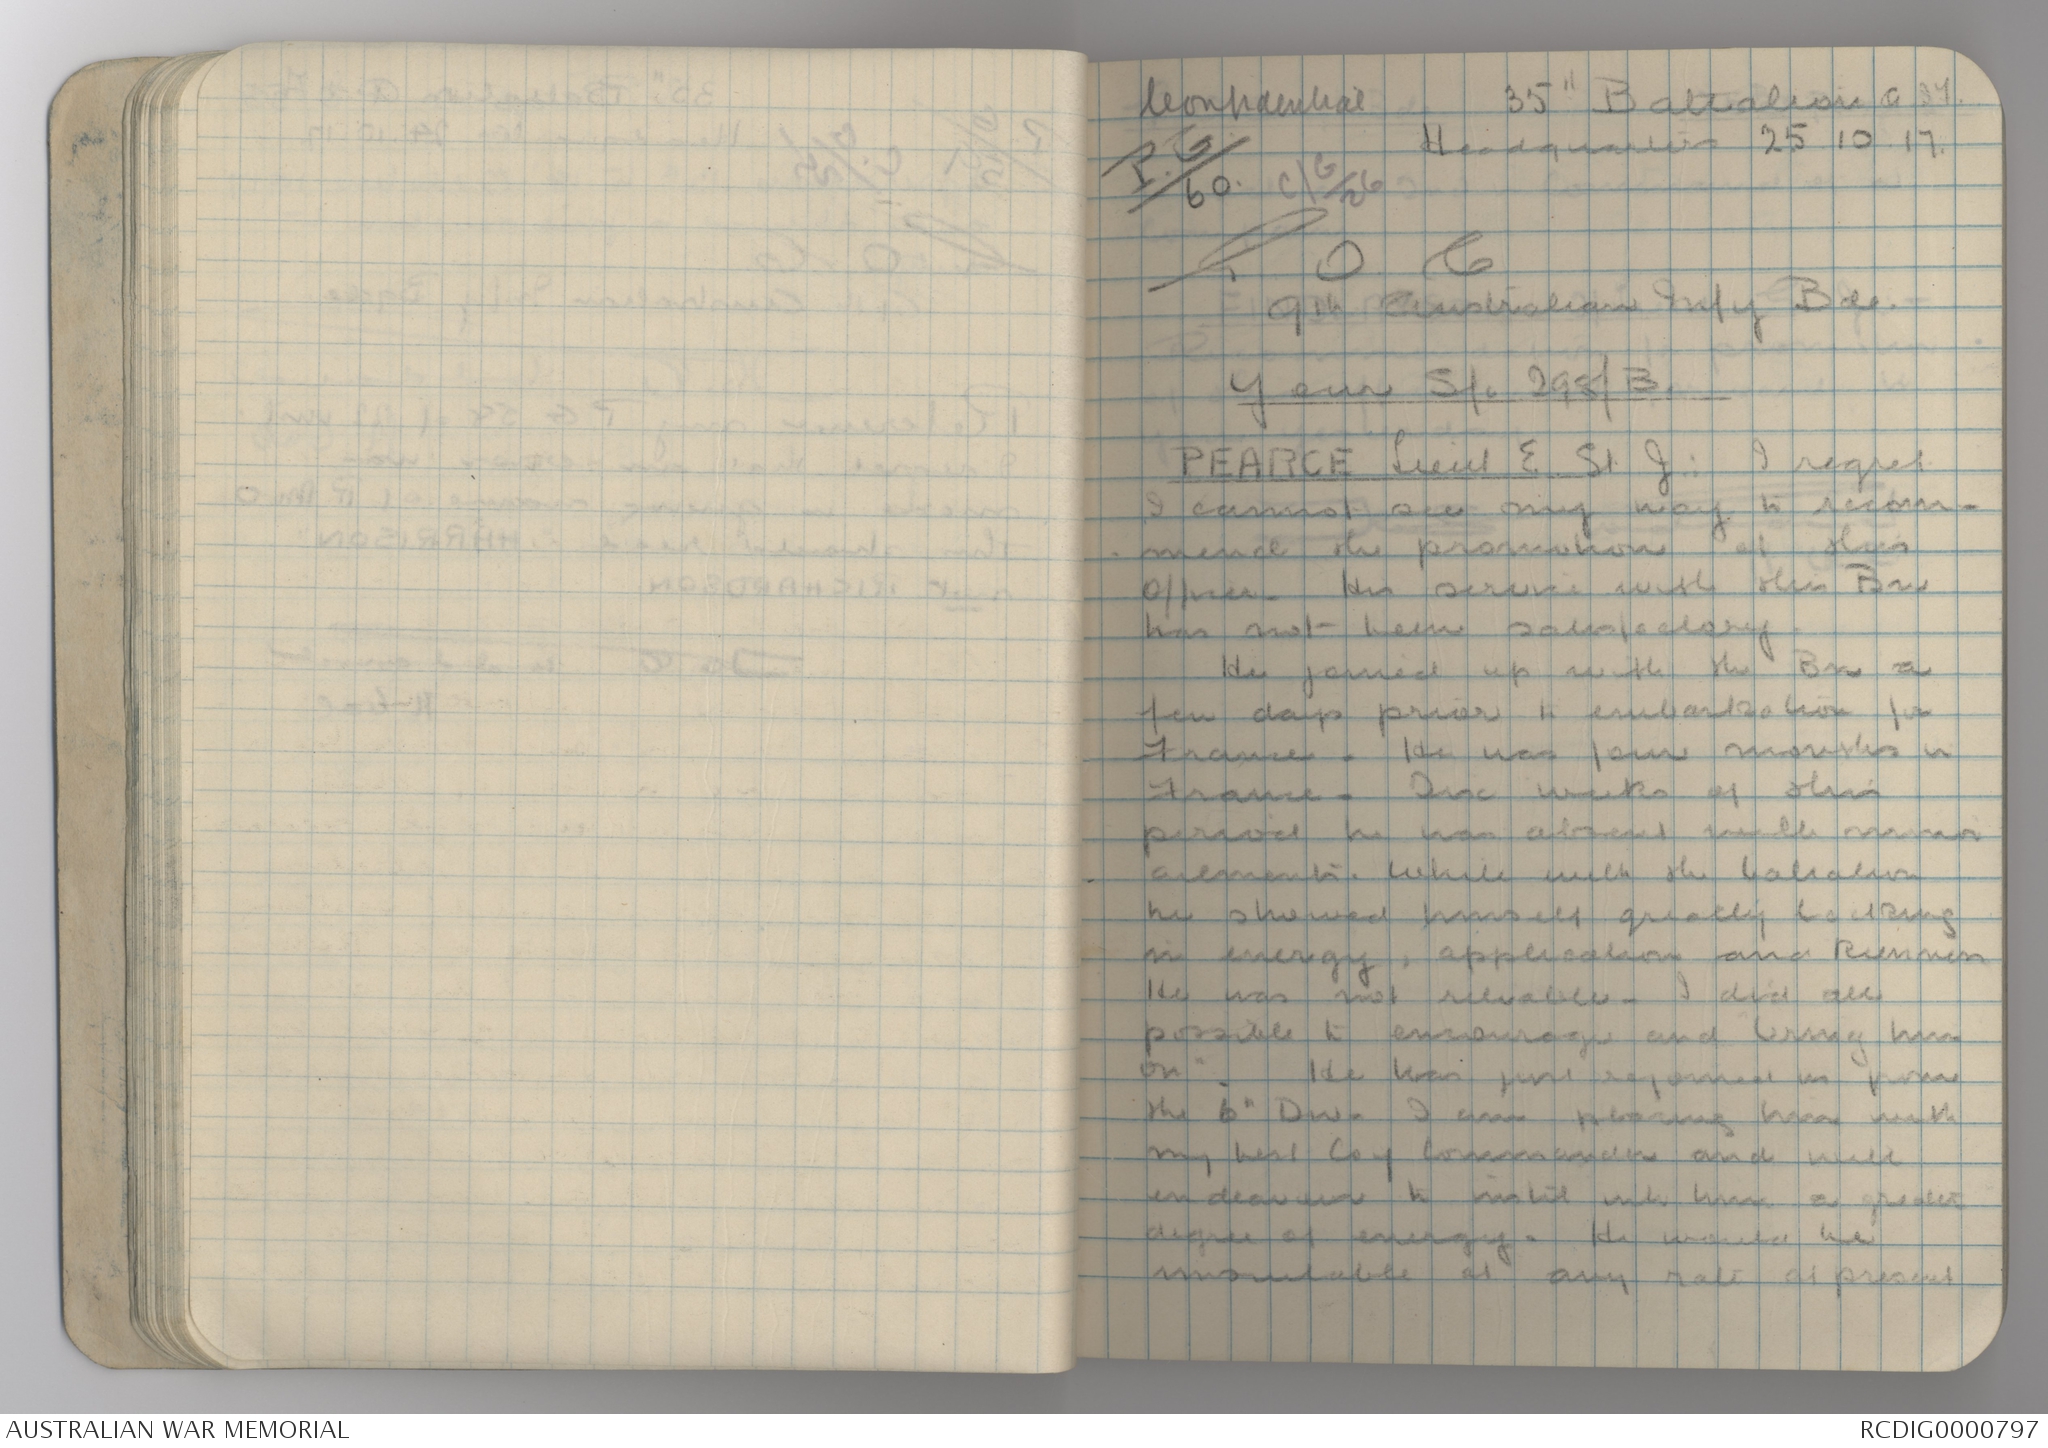 Confidential 35" Battalion
Headquarters 25.10.17.
P.G/60. C/G/26
O C
9th Australian Infy Bde.
Your S/c 298/B.
PEARCE Lieut E. St J: I regret
I cannot see my way to recom-
mend the promotion of this
Officer. His service with this Bn
has not been satisfactory.
He joined up with the Bn a
few days prior to embarkation for
France. He was four months in
France. Six weeks of this
period he was absent with minor
ailments. While with the battalion
he showed himself greatly lacking
in energy, application and keenness
He was not reliable. I did all
possible to encourage and bring him
on". He has just rejoined us from
the 6" Div. I am placing him with
my best Coy Commander and will
endeavour to instil into him a greater
degree of energy. He would be
unsuitable at any rate at present
AUSTRALIAN WAR MEMORIAL
RCDIG0000797